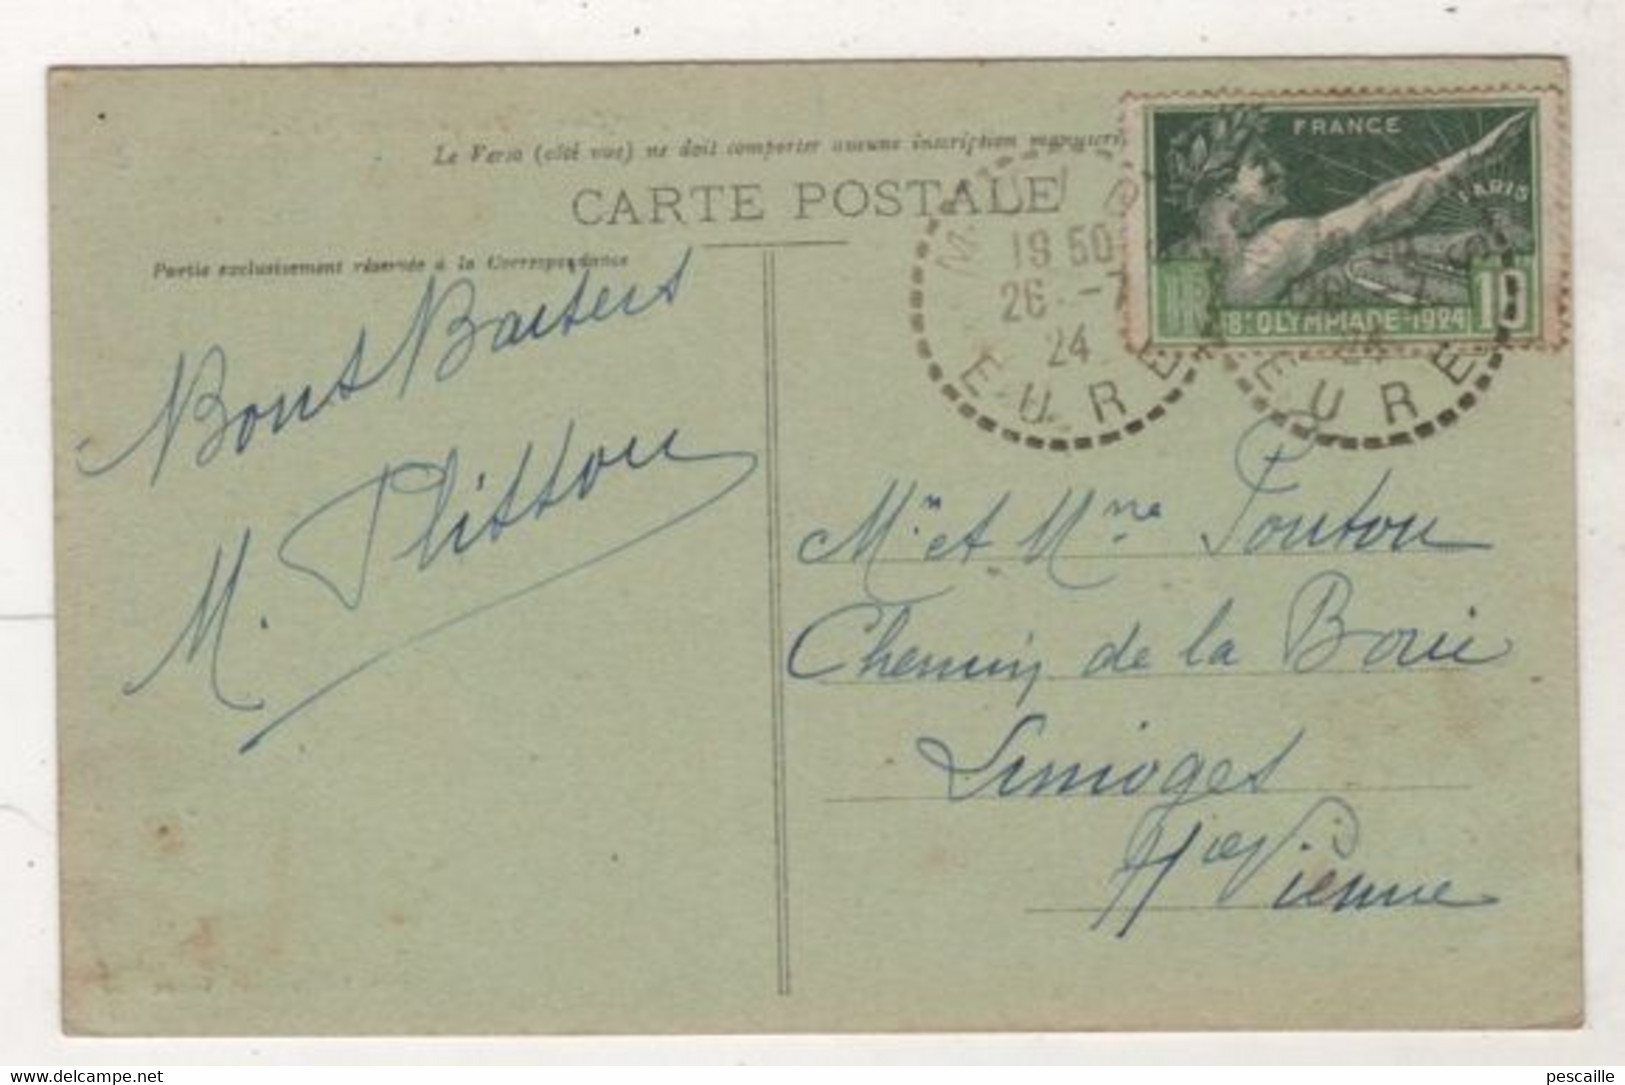 Le Verso (côté vue) ne doit comporter aucune inscription manuscri
CARTE POSTALE
Partie exclusivement réservée à la Correspondance
FRANCE
PARIS
10
8e OLYMPIADE 1924
19 50
26 -7
24
EURE
EURE
Bons Baisers
M. Plitton
Mr. et Mme Ponton
Chemin de la Borie
Limoges
Hte Vienne
pescaille